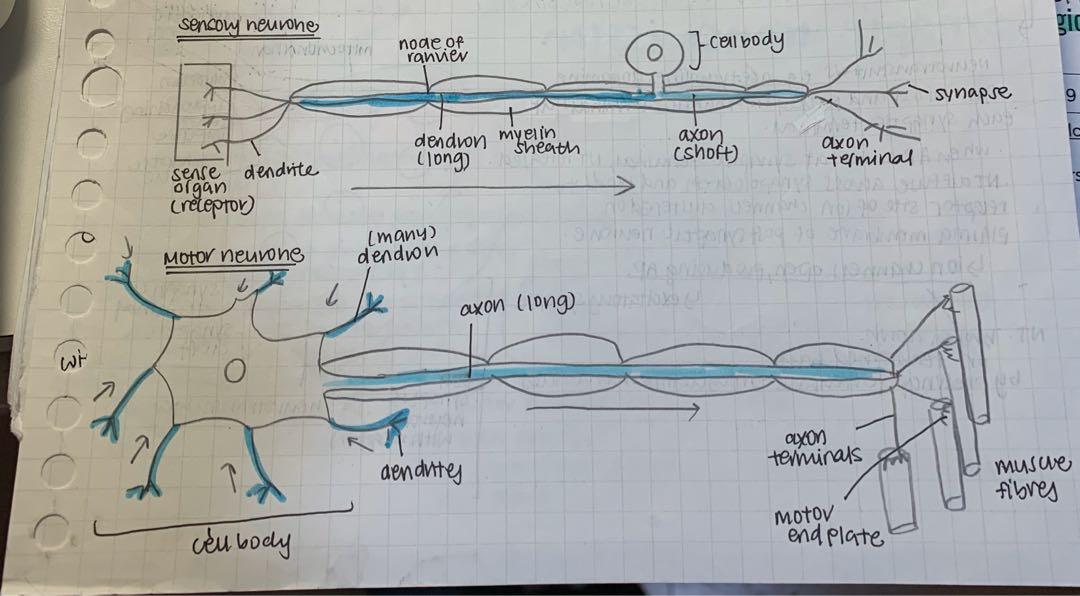 sensory neurone
node of
ranvier
cell body
synapse
dendron
(long)
myelin
sheath
axon
(short)
axon
terminal
sense
organ
(receptor)
dendrite
Motor neurone
(many)
dendron
axon (long)
dendrites
cell body
axon
terminals
motor
end plate
muscle
fibres